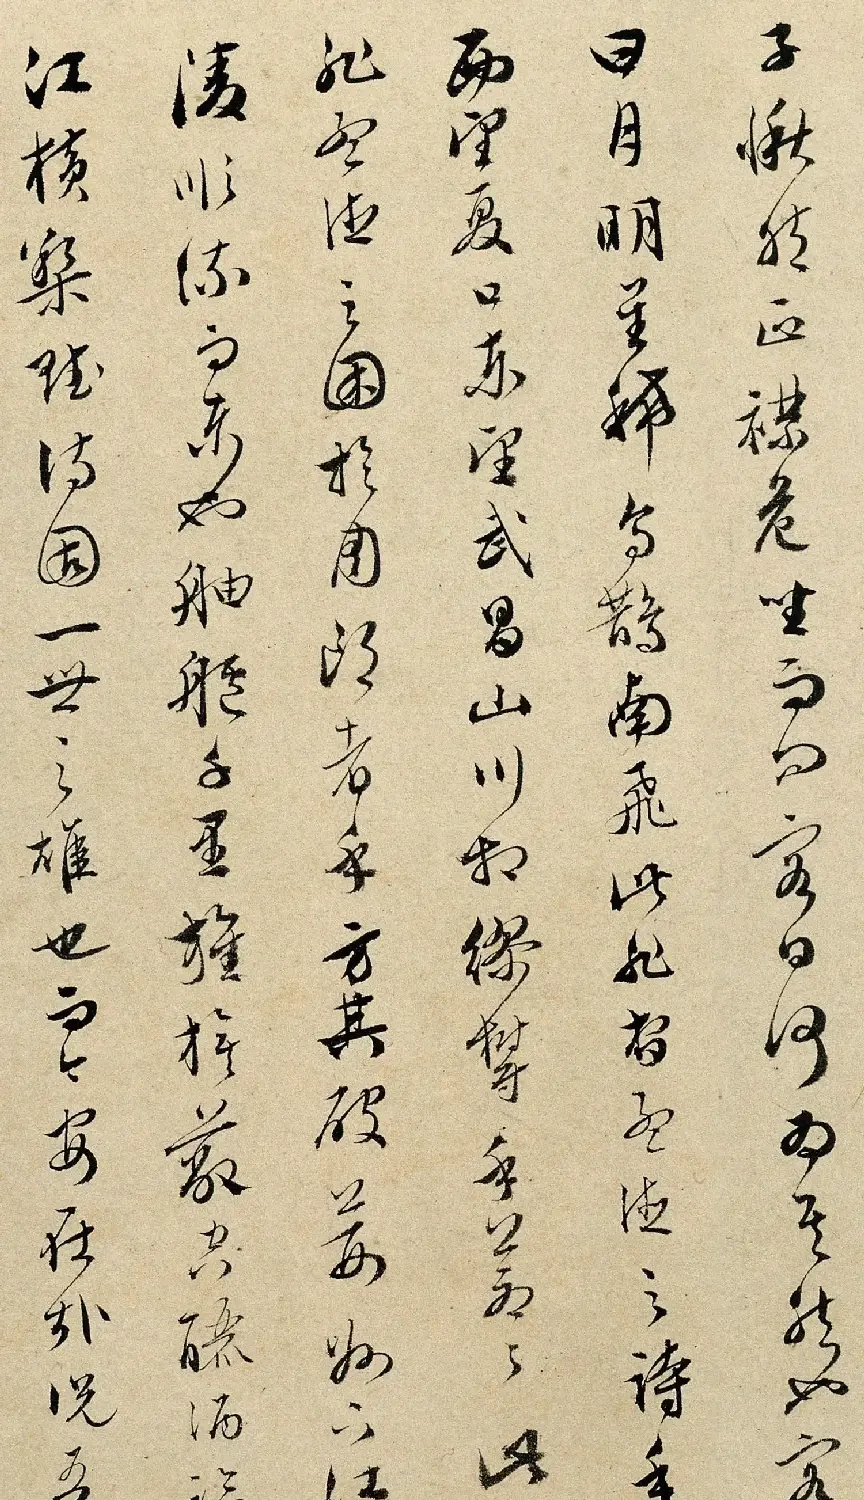 子愀然正襟危坐而問客曰何為其然也客
曰月明星稀烏鵲南飛此非曹孟德之詩乎
西望夏口東望武昌山川相繆鬱乎蒼〻此
非孟德之困於周郎者乎方其破荊州下江
陵順流而東也舳艫千里旌旗蔽空釃酒臨
江橫槊賦詩固一世之雄也而今安在哉況吾